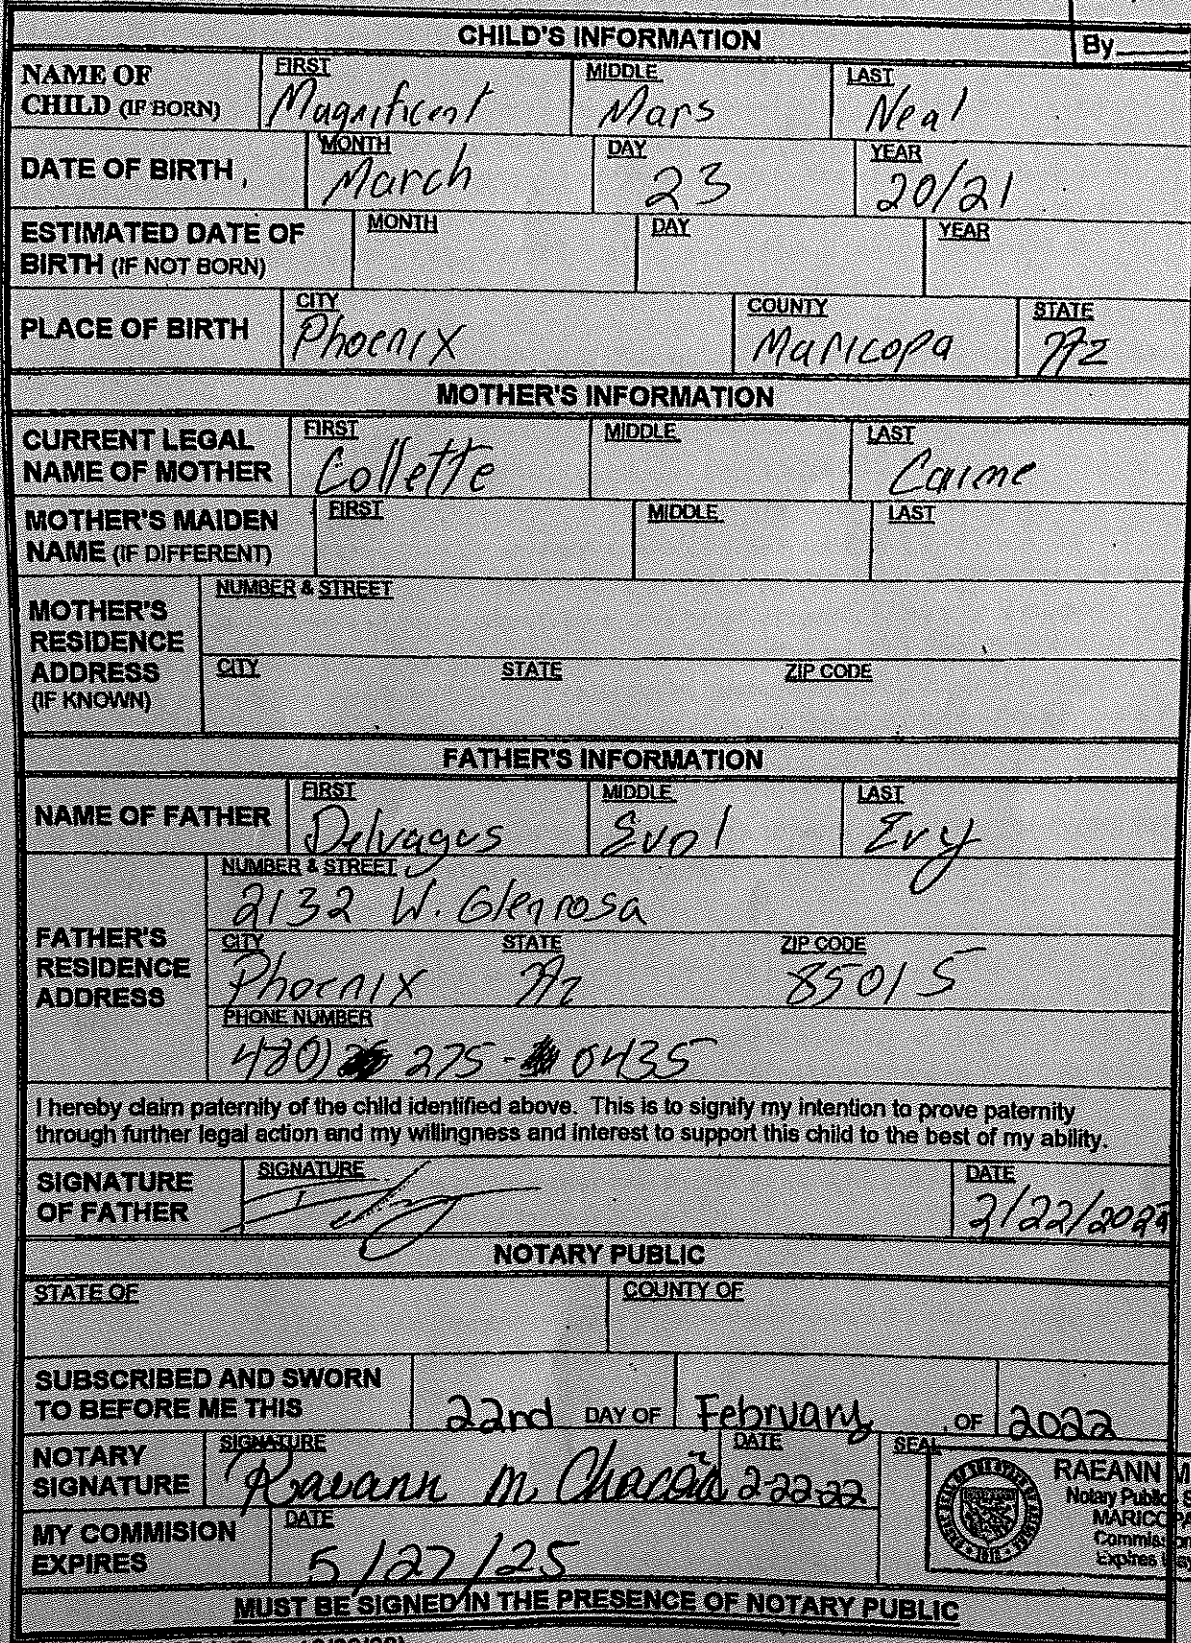 CHILD'S INFORMATION
By
NAME OF CHILD (IF BORN) FIRST Magnificent MIDDLE Mars LAST Neal
DATE OF BIRTH MONTH March DAY 23 YEAR 20/21
ESTIMATED DATE OF BIRTH (IF NOT BORN) MONTH DAY YEAR
PLACE OF BIRTH CITY Phoenix COUNTY Maricopa STATE Az
MOTHER'S INFORMATION
CURRENT LEGAL NAME OF MOTHER FIRST Collette MIDDLE LAST
MOTHER'S MAIDEN NAME (IF DIFFERENT) FIRST MIDDLE LAST
MOTHER'S RESIDENCE ADDRESS (IF KNOWN) NUMBER & STREET
CITY STATE ZIP CODE
FATHER'S INFORMATION
NAME OF FATHER FIRST Delvagus MIDDLE LAST Ivy
FATHER'S RESIDENCE ADDRESS NUMBER & STREET 2132 W. Glenrosa
CITY Phoenix STATE Az ZIP CODE 85015
PHONE NUMBER 480) 275-0435
I hereby claim paternity of the child identified above. This is to signify my intention to prove paternity
through further legal action and my willingness and interest to support this child to the best of my ability.
SIGNATURE OF FATHER SIGNATURE DATE 2/22/2022
NOTARY PUBLIC
STATE OF COUNTY OF
SUBSCRIBED AND SWORN TO BEFORE ME THIS 22nd DAY OF February, OF 2022
NOTARY SIGNATURE SIGNATURE Raeann M. Chacón DATE 2-22-22 SEAL
RAEANN M
Notary Public, S
MARICOPA
Commission
Expires
MY COMMISION EXPIRES DATE 5/27/25
MUST BE SIGNED IN THE PRESENCE OF NOTARY PUBLIC